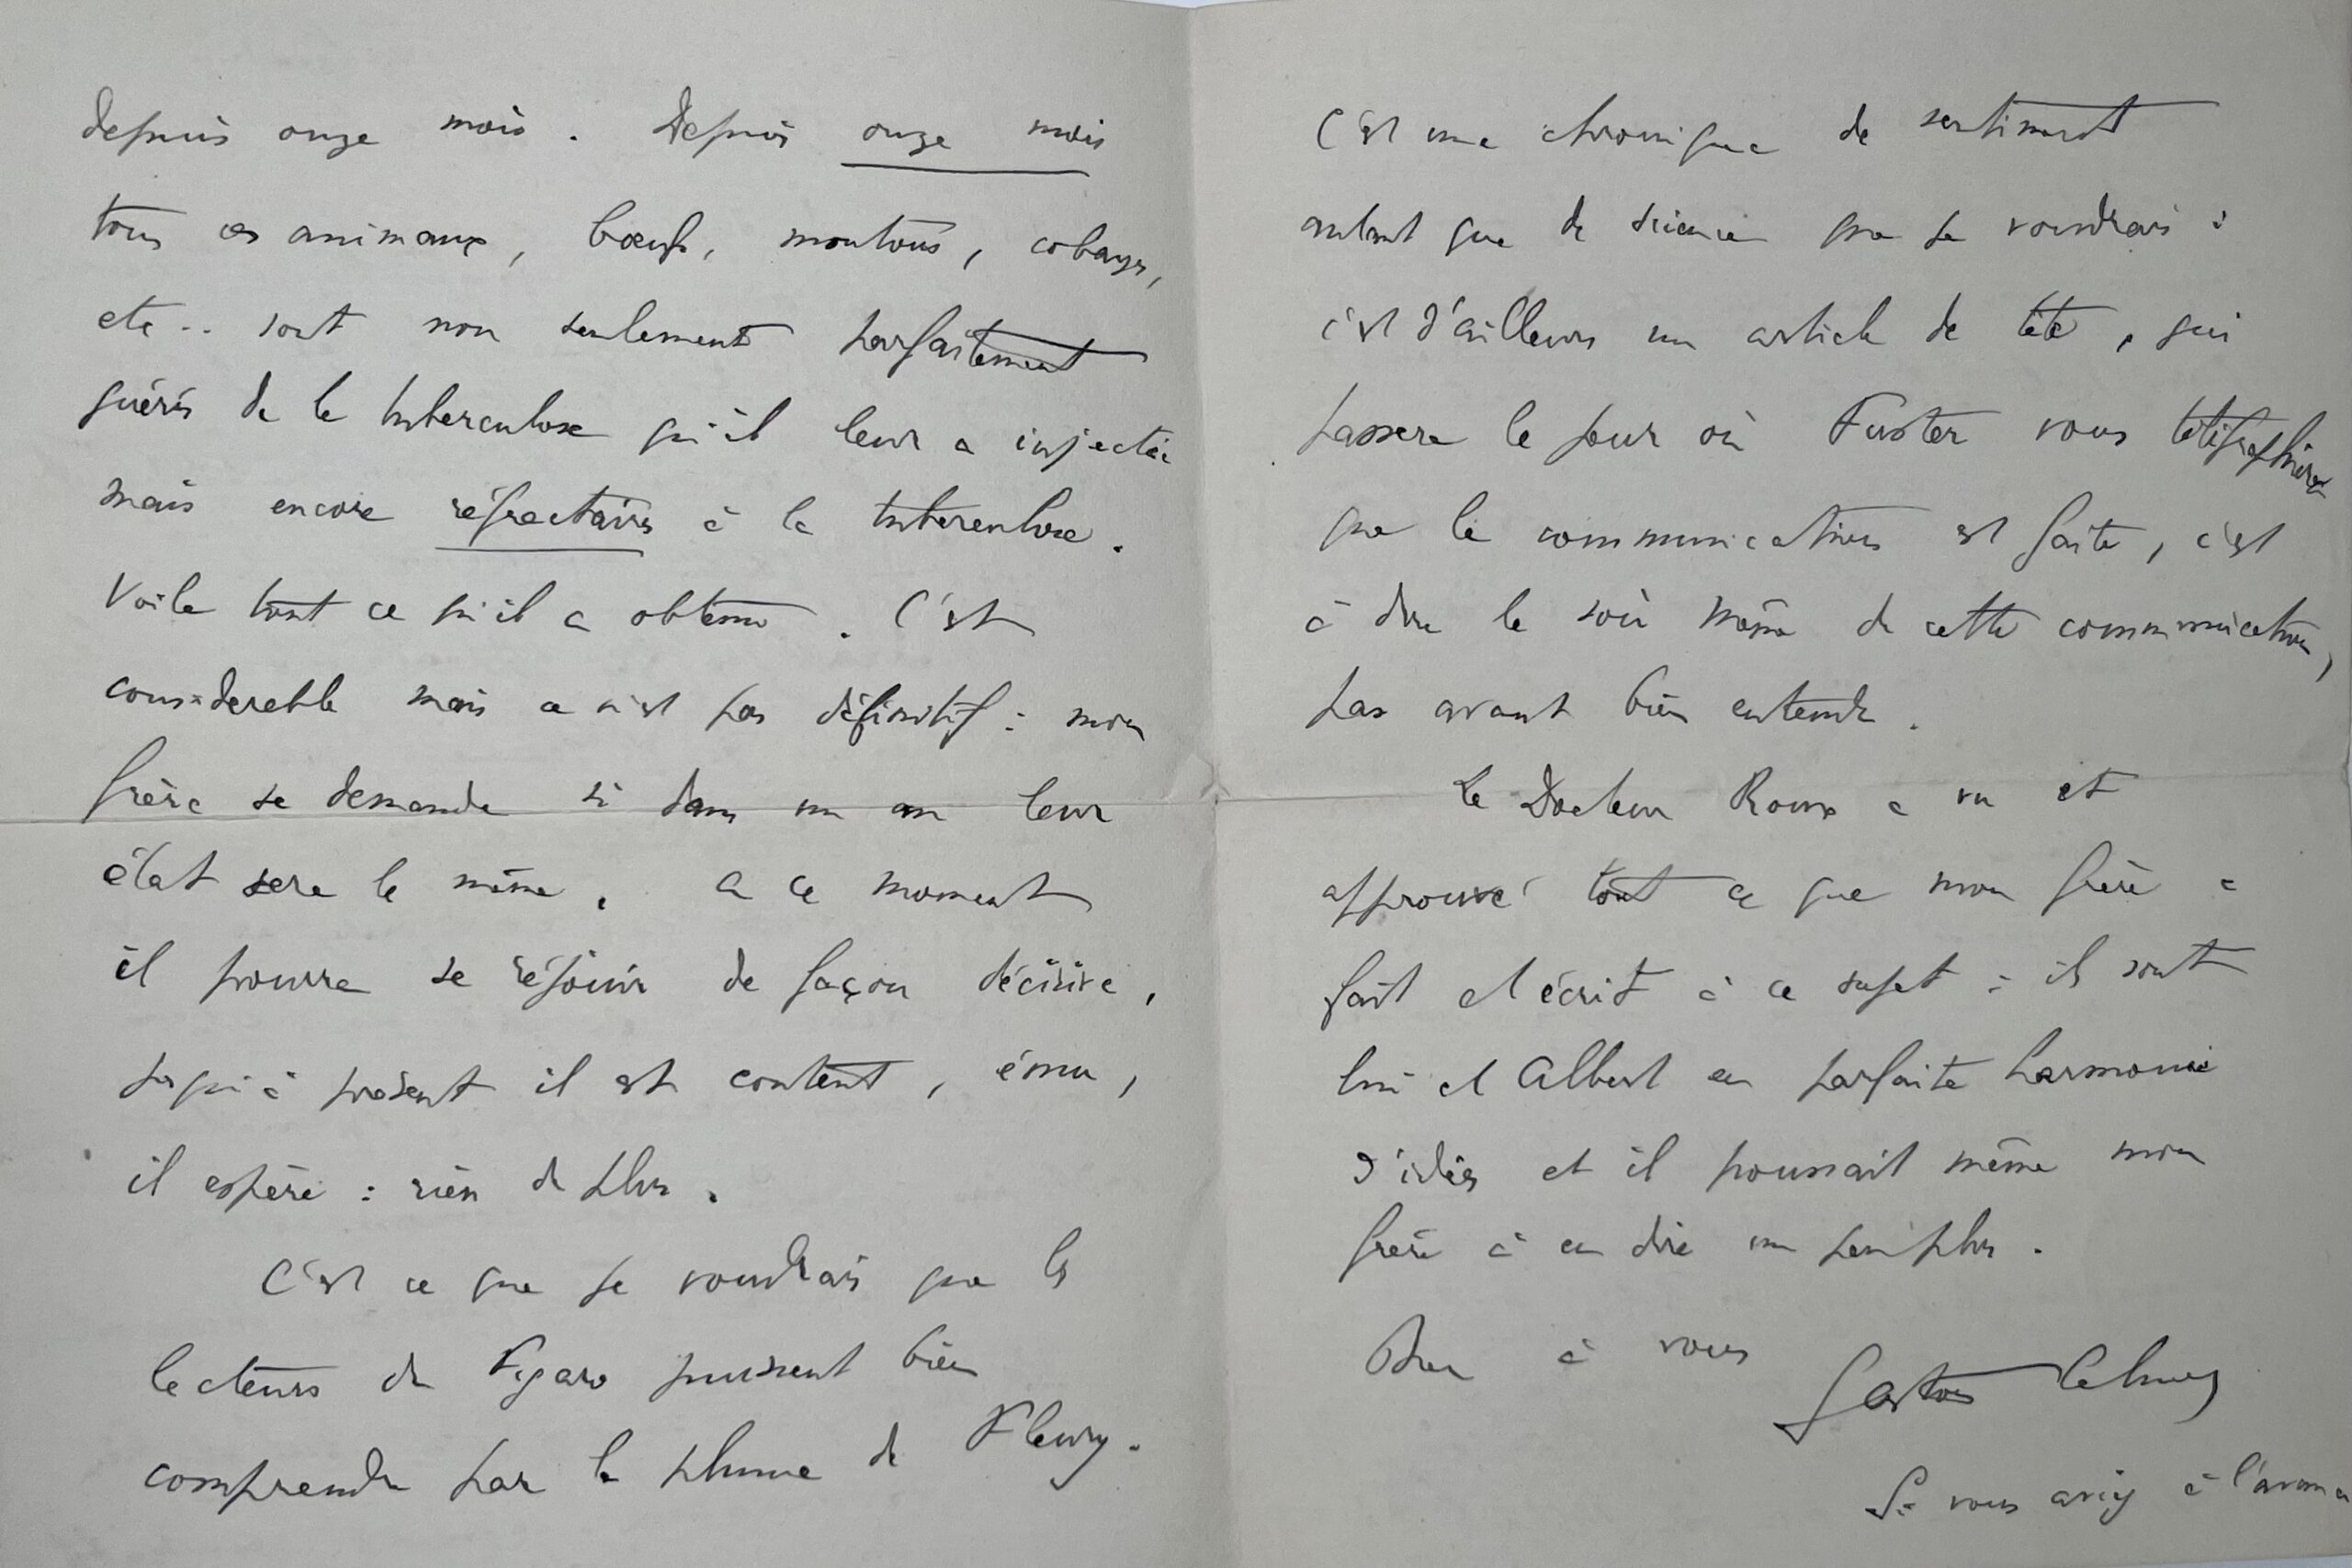 depuis onze mois. Depuis onze mois
tous ces animaux, bœufs, moutons, cobayes,
etc.. sont non seulement parfaitement
guéris de la tuberculose qu'il leur a injectée
mais encore réfractaires à la tuberculose.
Voilà tout ce qu'il a obtenu. C'est
considerable mais ce n'est pas définitif : mon
frère se demande si dans un an leur
état sera le même. A ce moment
il pourra se réjouir de façon décisive,
jusqu'à présent il est content, ému,
il espère : rien de plus.
C'est ce que je voudrais que les
lecteurs du Figaro puissent bien
comprendre par la plume de Fleury.
C'est une chronique de sentiment
autant que de science que je voudrais :
c'est d'ailleurs un article de tête, qui
passera le jour où Fuster vous télégraphiera
que la communication est faite, c'est
à dire le soir même de cette communication,
pas avant bien entendu.
Le Docteur Roux a vu et
approuvé tout ce que mon frère a
fait et écrit à ce sujet : ils sont
lui et Albert en parfaite harmonie
d'idées et il poussait même mon
frère à en dire un peu plus.
Bien à vous
Gaston Calmette
Si vous aviez à l'avance